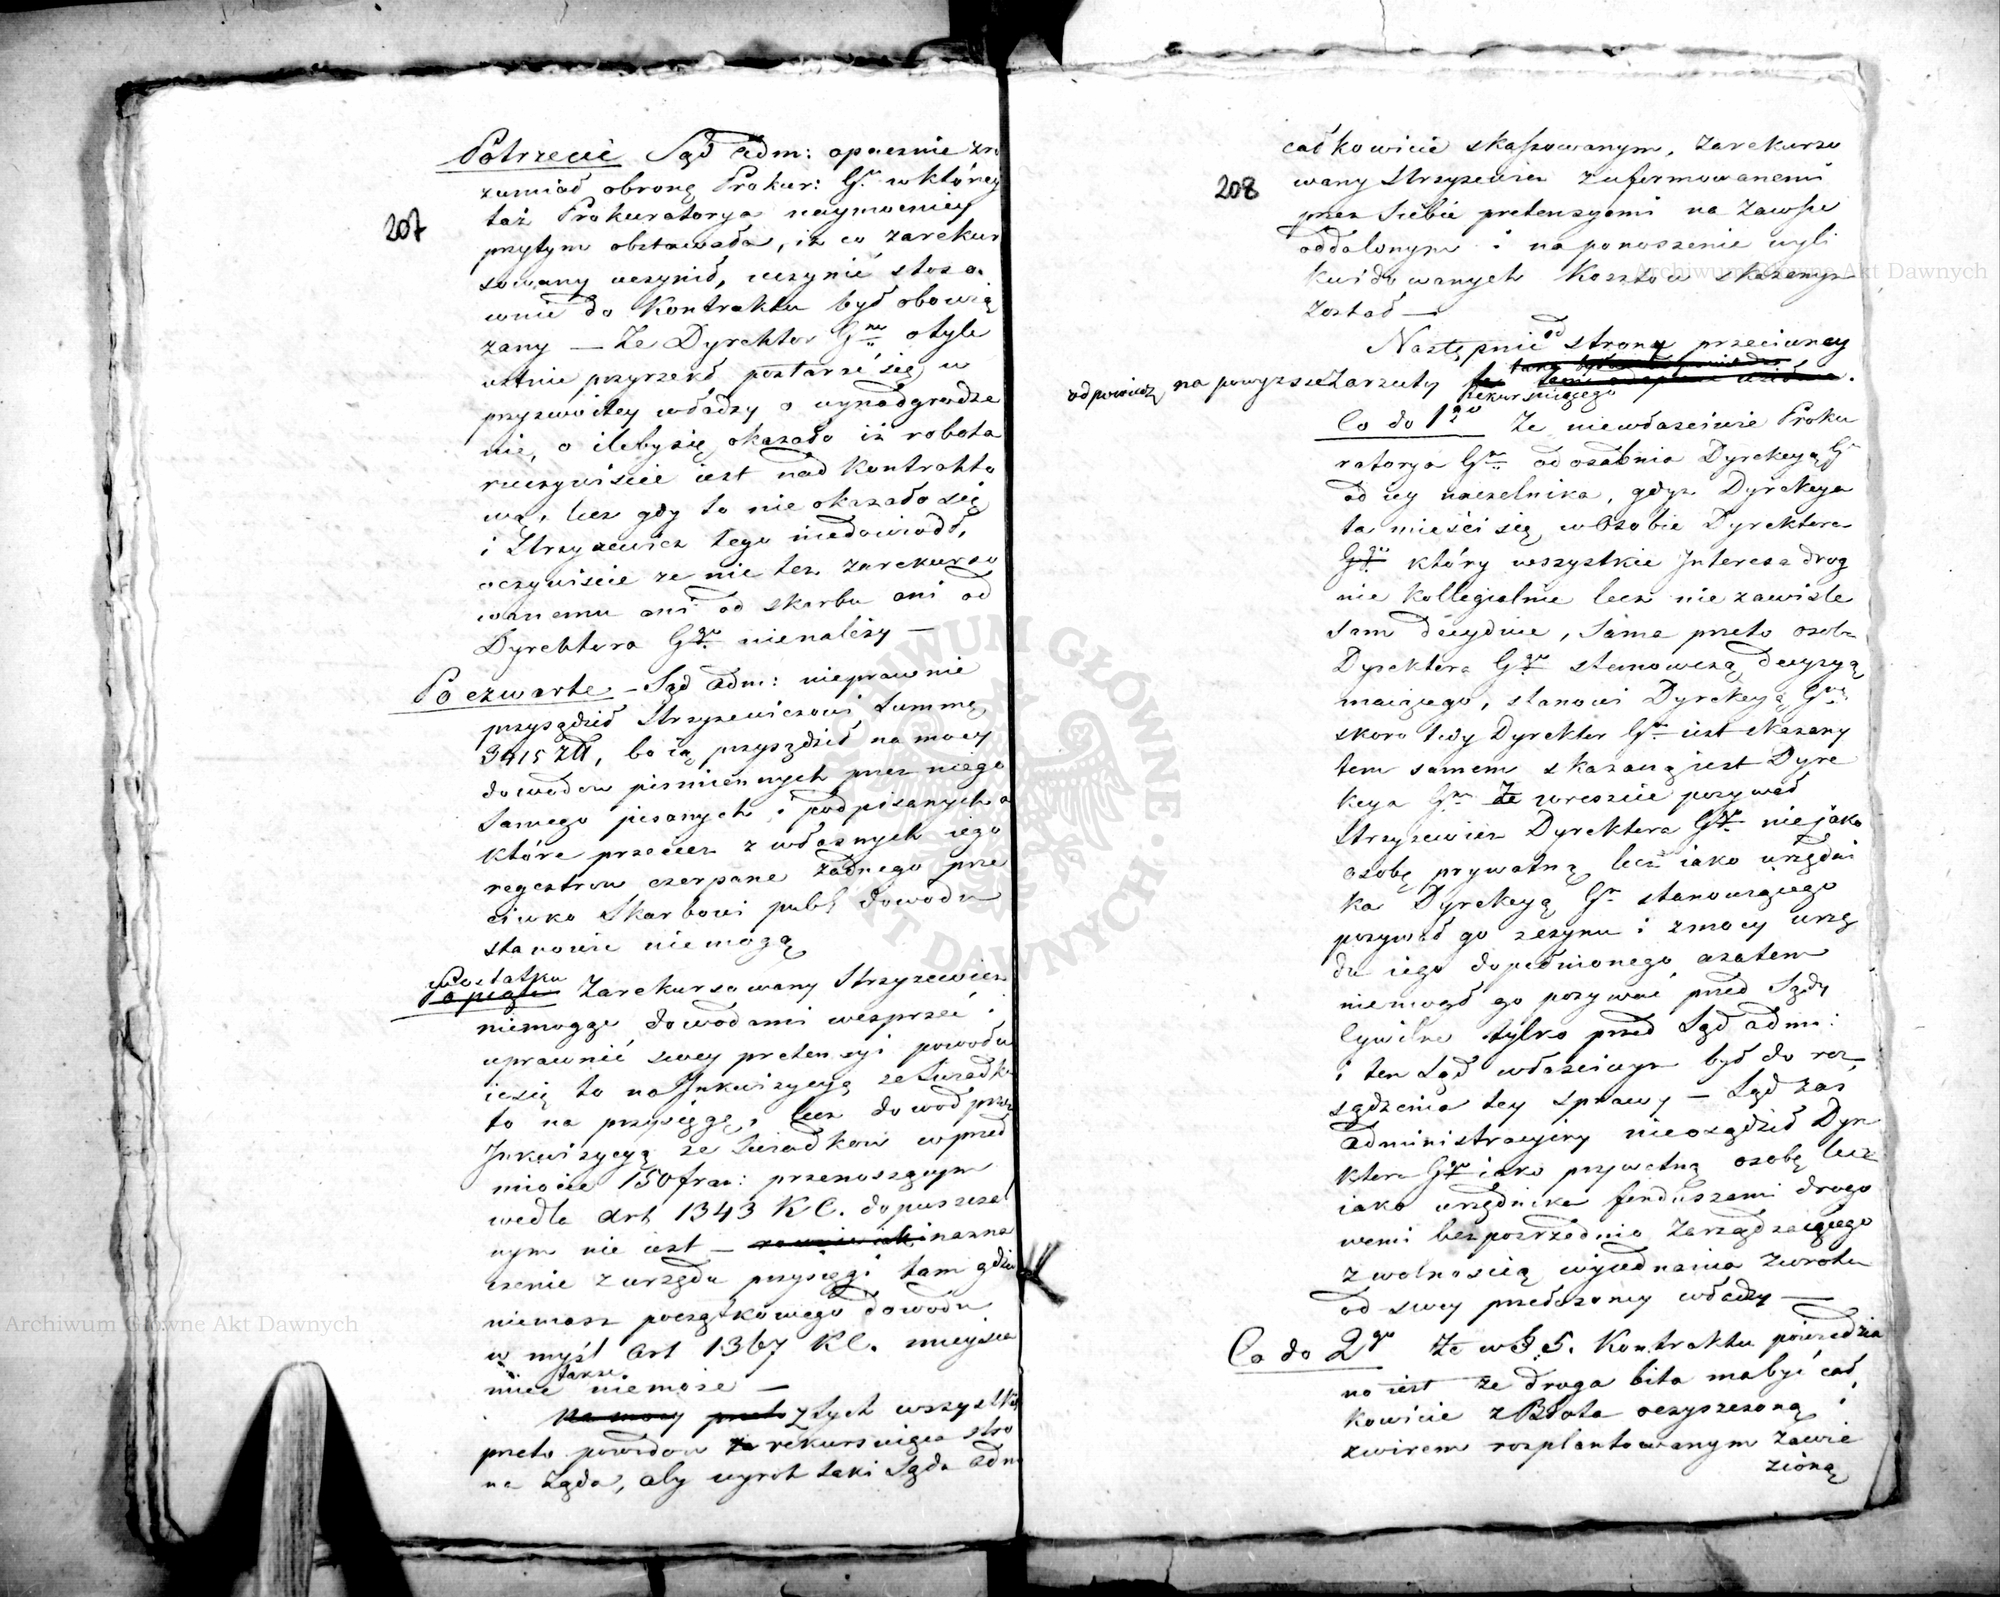 207
Potrzecie Sąd adm: opacznie zro
zumiał obronę Prokur: Gr. w którey
taż Prokuratorya naymocniey
przytym obstawała, iż co zarekur
sowany uczynił, uczynić stoso.
wnie do Kontraktu był obowią
zany — Że Dyrektor Gny otyle
ustnie przyrzekł postarać się u
przyzwoitey władzy o wynadgrodze
nie, o ileby się okazało iż robota
rzeczywiście iest nad kontrakto
wą, lecz gdy to nie okazało się
i Strzyżewicz tego niedowiódł,
oczywiście ze nie też zarekurso
wanemu ani od skarbu ani od
Dyrektora Ggo nienależy —
Po czwarte – Sąd adm: nieprawnie
przysądził Strzyżewiczowi Summę
3415 zł, bo ią przysądził na mocy
dowodów piśmiennych przez niego
samego pisanych i podpisanych a
które przecież z własnych iego
regestrow czerpane żadnego prze
ciwko Skarbowi publ dowodu
stanowić niemogą
Wostatku
Po piąte Zarekursowany Strzyżewicz
niemogąc dowodami wesprzeć i
uprawnić swey pretensyi powodu
ie się to na Inkwizycyą ze świadków
to na przysięgę, lecz dowód przez
Inkwizycyą ze świadków w przed
miocie 150 fran: przenoszącym
wedle Art 1343 KC. dopuszczal
nym nie iest — nazna
czenie z urzędu przysięgi tam gdzie
niemasz początkowego dowodu
w myśl Art 1367 KC. mieysca
także
mieć niemoże —
Na mocy przeto z tych wszystkich
przeto powodow rekursuiąca stro
na żąda, aby wyrok taki Sądu adm
208
całkowicie skassowanym, zarekurso
wany Strzyżewicz z uformowanemi
przez siebie pretensyami na zawsze
oddalonym i na ponoszenie wyli
kwidowanych kosztow skazanym
został —
Następnie od strony przeciwney
odpowiedź na powyższe zarzuty
rekursuiącego
Co do 1go Że niewłaściwie Proku
ratorya Gna od osobnia Dyrekcyą G
od iey naczelnika, gdyż Dyrekcya
ta mieści się w Osobie Dyrektora
Ggo który wszystkie Interesa drog
nie kollegialnie lecz niezawiśle
sam decyduie, Sama przeto osoba
Dyrektora Ggo stanowczą decyzyą
maiącego, stanowi Dyrekcyą Gną
skoro tedy Dyrektor Gny iest skazany
tem samem skazaną iest Dyre
kcya Gna Że wreszcie pozywał
Strzyżewicz Dyrektora Ggo nie jako
osobę prywatną lecz iako urzędni
ka Dyrekcyą Gn stanowiącego
pozywał go z czynu i z mocy urzę
du iego dopełnionego, a zatem
niemógł go pozywać przed Sądy
Cywilne tylko przed Sąd adm:
i ten Sąd właściwym był do roz
sądzenia tey sprawy — Sąd zaś
administracyiny nieosądził Dyr
ktora Ggo iako prywatną osobę lecz
iako urzędnika funduszami drogo
wemi bezpośrzednio zarządzaiącego
z wolnością wyiednania zwrotu
od swey przełożoney władzy —
Co do 2go Że w § 5. Kontraktu powiedzia
no iest że droga bita ma być cał
kowicie z Błota oczyszczoną i
żwirem rozplantowanym zawie
zioną